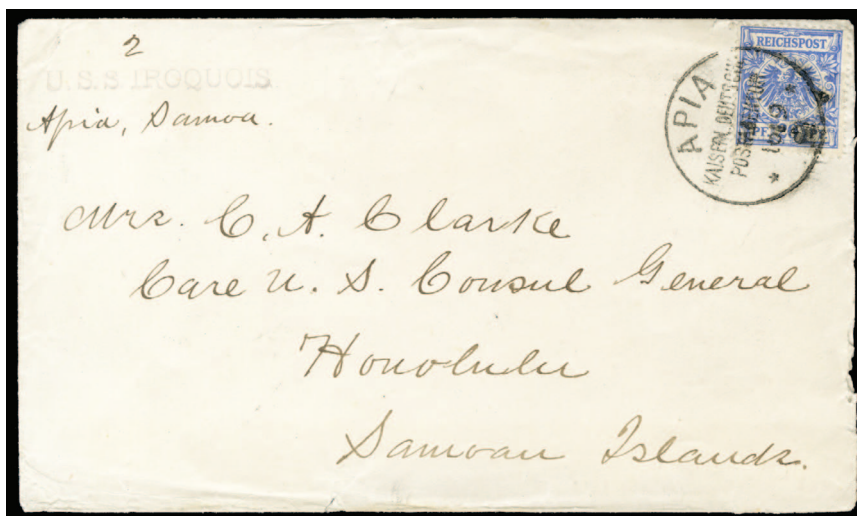 2
U.S.S IROQUOIS
Apia, Samoa.
REICHSPOST
APIA
KAISERL. DEUTSCHE
Mrs. C. A. Clarke
Care U. S. Consul General
Honolulu
Samoan Islands.